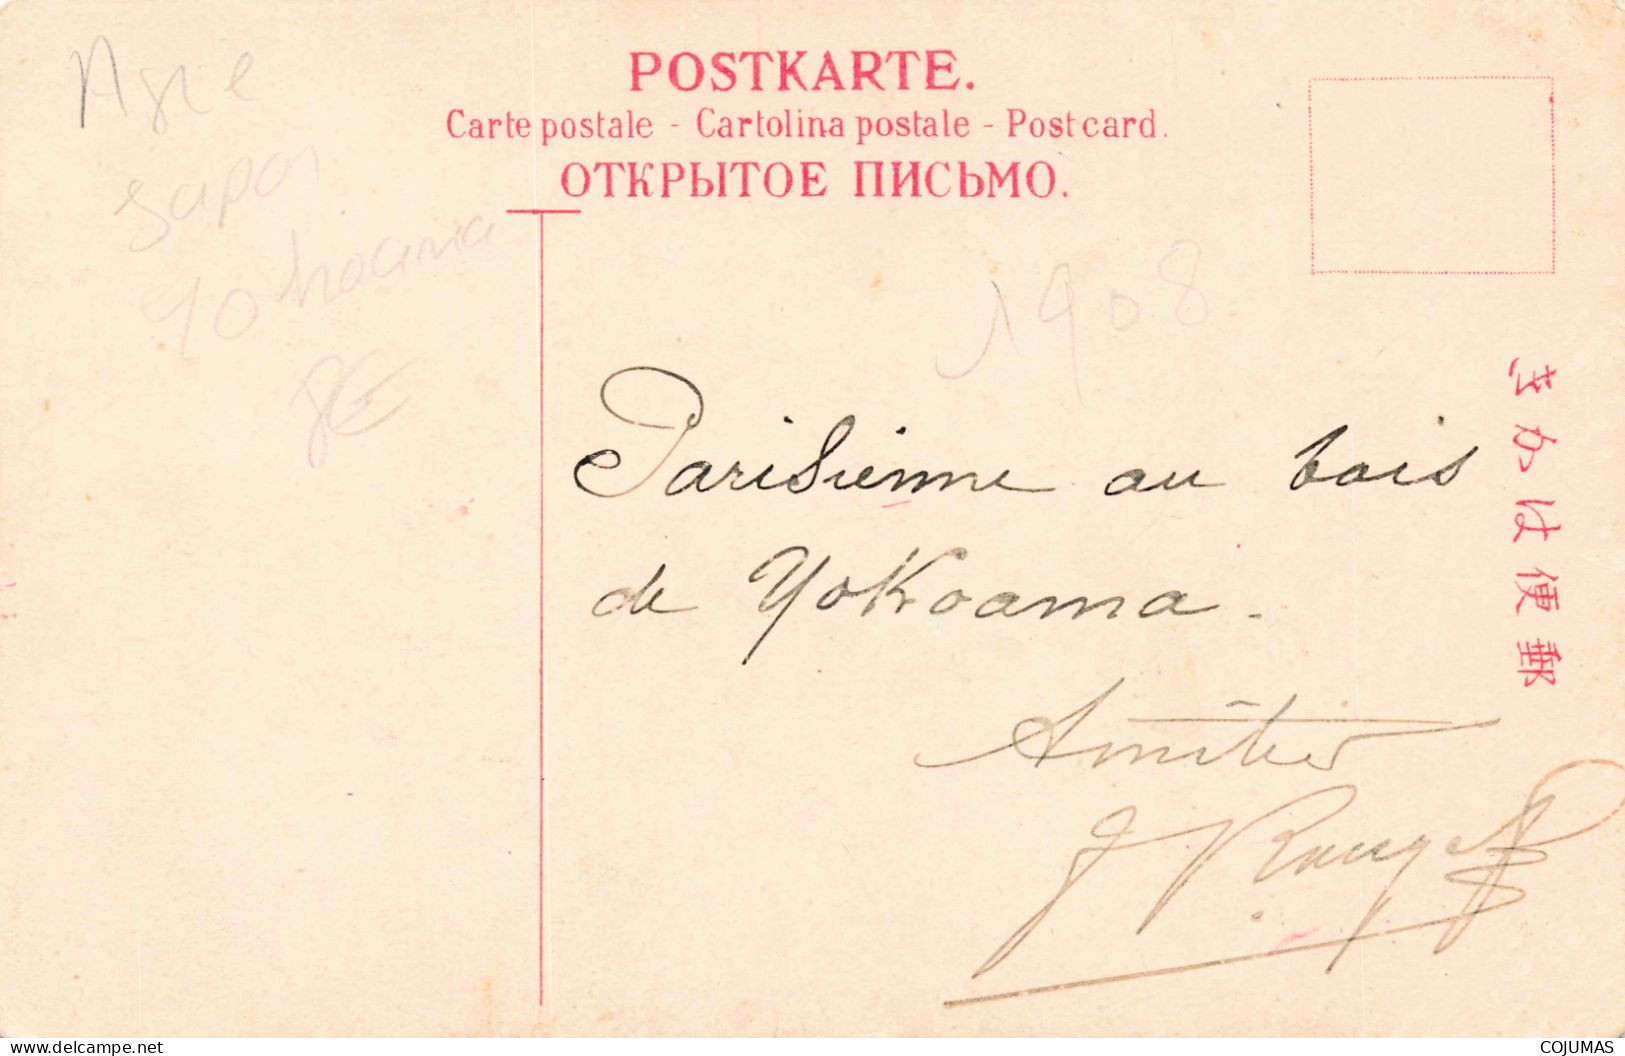 POSTKARTE.
Carte postale - Cartolina postale - Postcard.
ОТКРЫТОЕ ПИСЬМО.
Japon
Yohoama
8E
1908
Parisienne au bois
de Yokoama.
Amitiés
J Rouget
きかは便郵
www.delcampe.net
COJUMAS